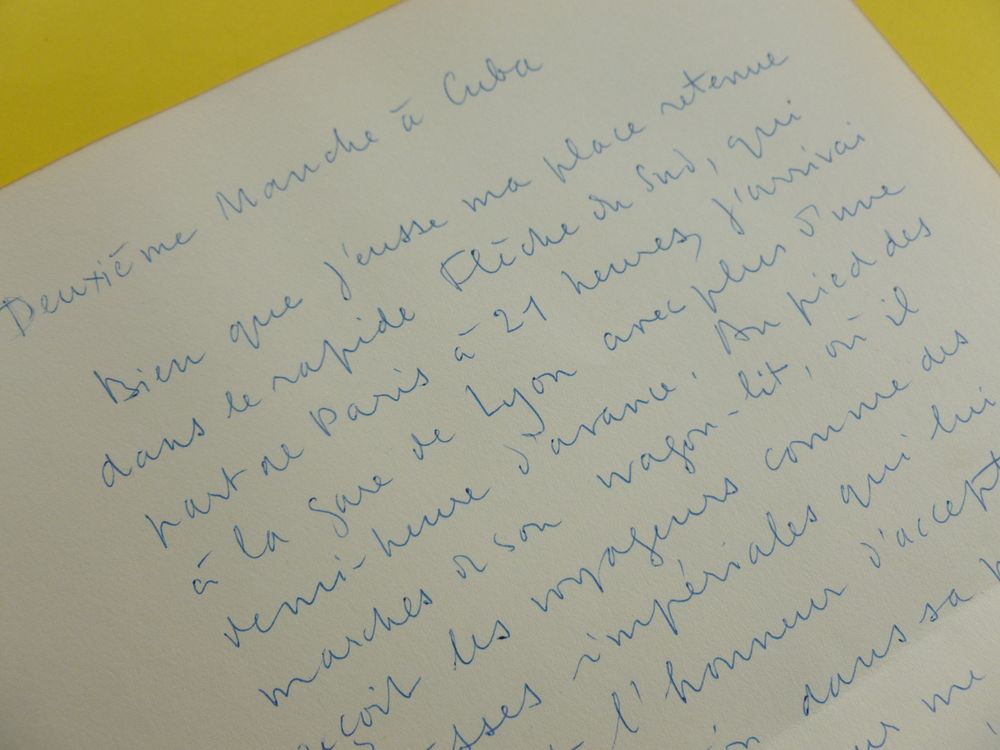 Deuxième Manche à Cuba
Bien que j'eusse ma place retenue
dans le rapide Flèche du Sud, qui
part de Paris à 21 heures, j'arrivai
à la gare de Lyon avec plus d'une
demi-heure d'avance. Au pied des
marches de son wagon-lit, où il
reçoit les voyageurs comme des
impériales qui lui
l'honneur d'accept
dans sa
me